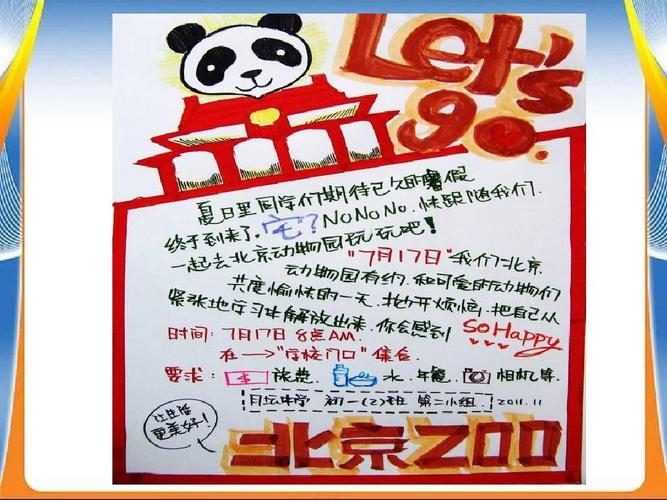 Let's
go.
夏日里同学们期待已久的暑假
终于到来了.宅?NoNoNo.快跟随我们.
一起去北京动物园玩玩吧!
"7月17日"我们北京
动物园有约.和可爱的动物们
共度愉快的一天.抛开烦恼.把自己从
紧张地学习中解放出来.你会感到 So Happy
时间:7月17日 8点AM.
在→"学校门口"集合.
要求: 水. 相机等.
月坛中学 初一(2)班 第二小组. 2011.11
让生活
更美好!
北京ZOO